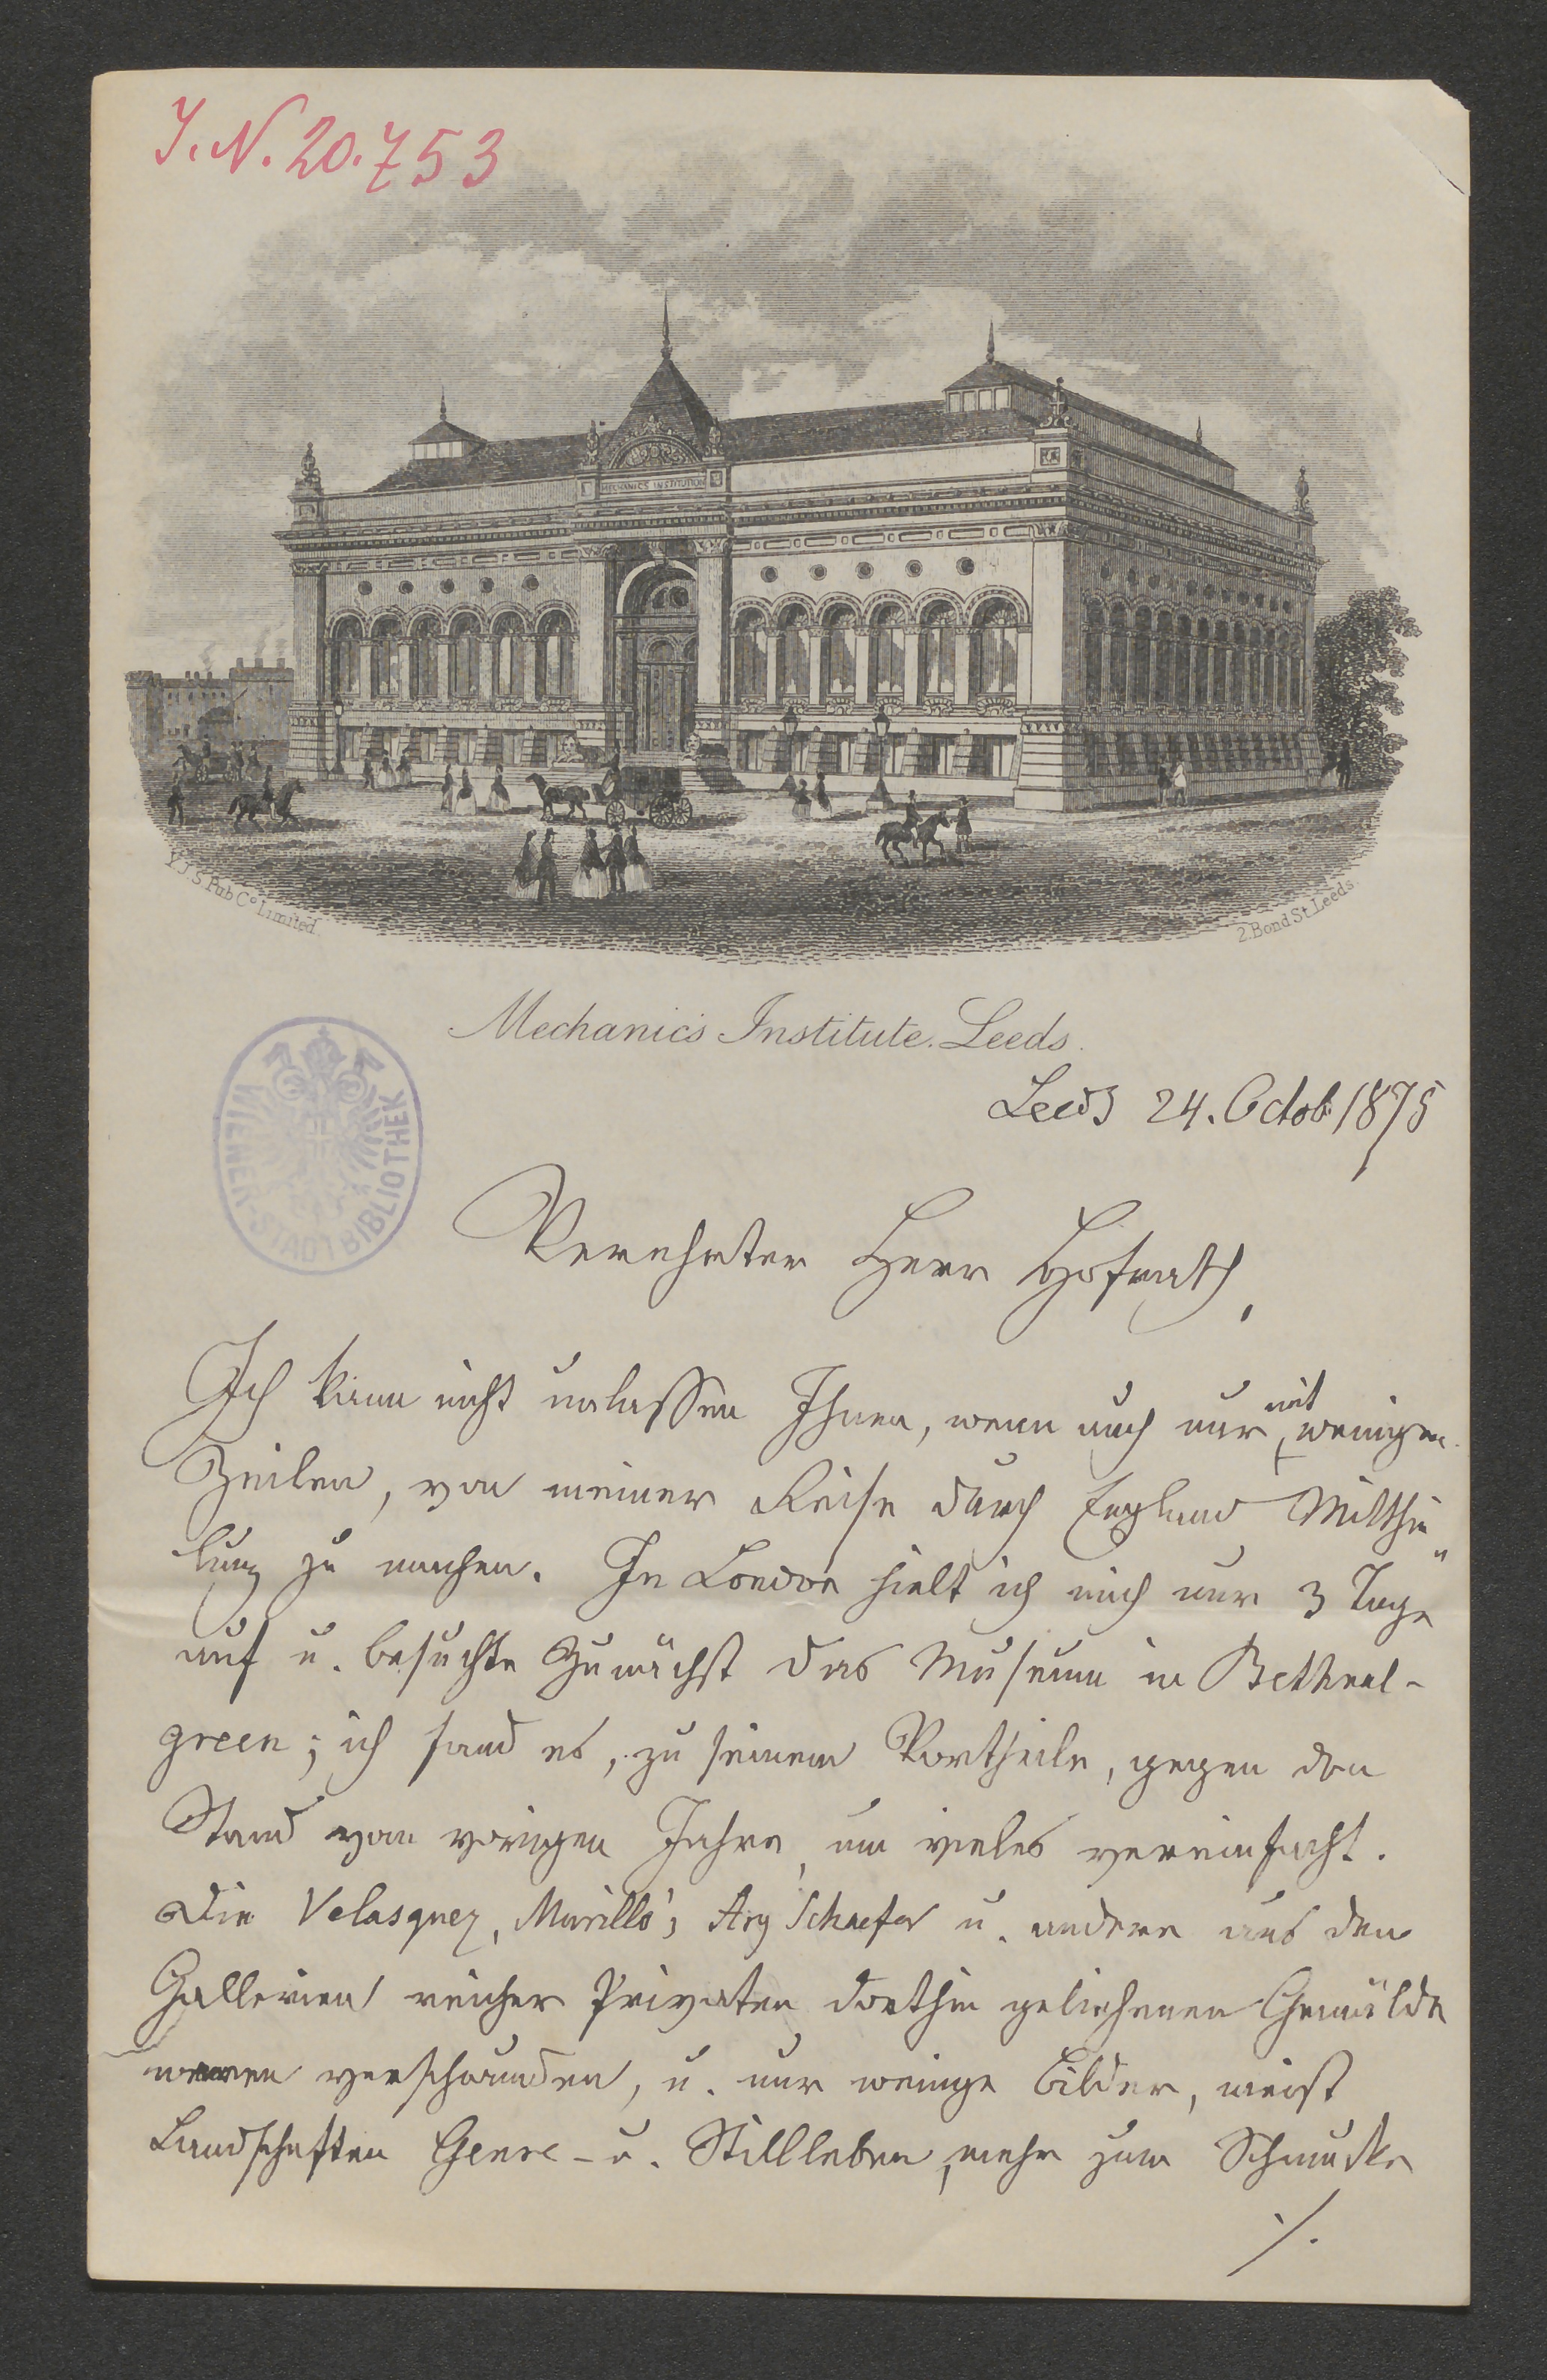 J.N. 20.753
MECHANICS INSTITUTION
Y.J.S. Pub Co. Limited.
2. Bond St. Leeds.
Mechanic's Institute. Leeds.
WIENER-STADTBIBLIOTHEK
Leeds 24. Octob 1875
Verehrter Herr Hofrath,
Ich kann nicht unlassen Ihnen, wenn auch nur mit wenigen
Zeilen, von meiner Reise durch England Mitthei"
lung zu machen. In London hielt ich mich nur 3 Tage
auf u. besuchte zunächst das Museum in Bethnal-
green; ich fand es, zu seinem Vortheile, gegen den
Stand vom vorigen Jahre, um vieles vereinfacht.
Die Velasquez, Murillo's, Ary Schaefer u. andere aus den
Gallerien reicher Privaten dorthin geliehenen Gemälde
waren verschwunden, u. nur wenige Bilder, meist
Landschaften Genre- u. Stillleben, mehr zum Schmucke
./.